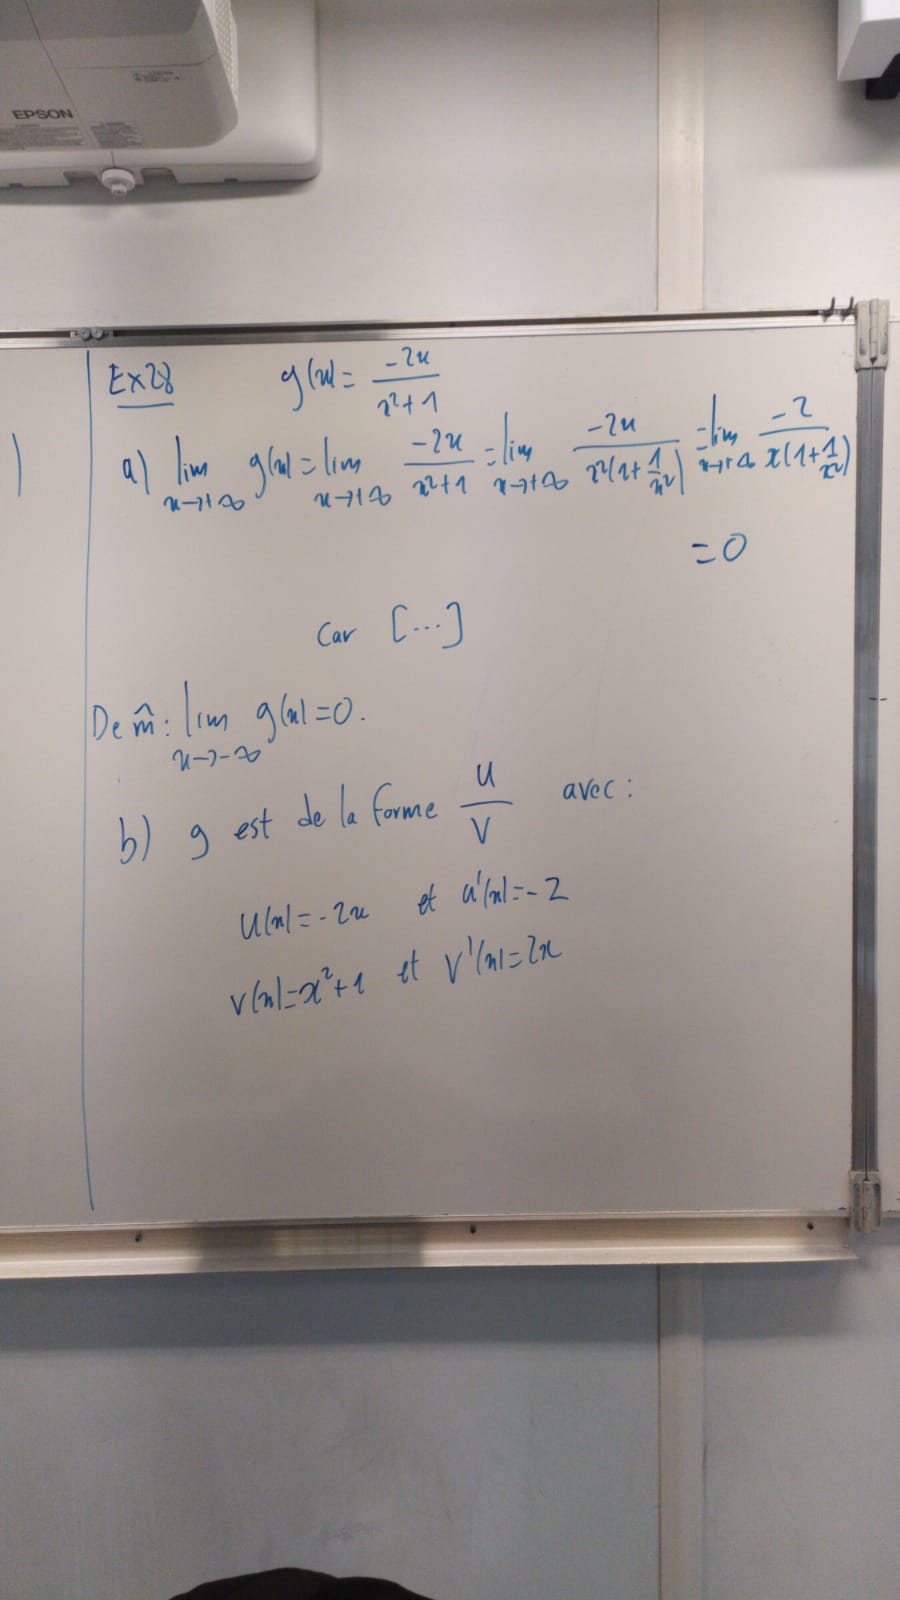 EPSON
Ex28 g(x) = -2x / x²+1
a) lim x→+∞ g(x) = lim x→+∞ -2x / x²+1 = lim x→+∞ -2x / x²(1+1/x²) = lim x→+∞ -2 / x(1+1/x²)
=0
Car [...]
De m̂ : lim x→-∞ g(x) =0.
b) g est de la forme u/v avec :
u(x) = -2x et u'(x) = -2
v(x) = x²+1 et v'(x) = 2x